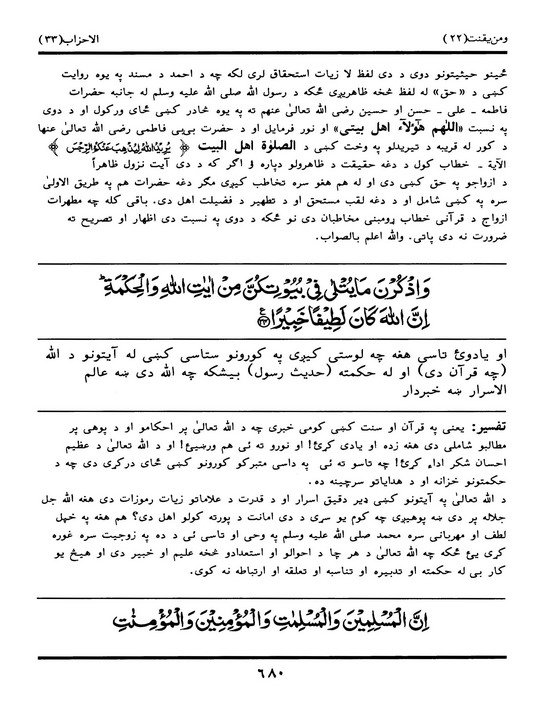 ومن يقنت(٢٢) الاحزاب(٣٣)
ځينو حيثيتونو دوى د دى لفظ لا زيات استحقاق لرى لكه چه د احمد د مسند په يوه روايت
كښى د «احق» له لفظ څخه ظاهريږى ځكه د رسول الله صلى الله عليه وسلم له جانبه حضرات
فاطمه ـ على ـ حسن او حسين رضى الله تعالىٰ عنهم ته په يوه څادر كښى ځاى وركول او د دوى
په نسبت «اللهم هٰؤلآء اهل بيتى» او نور فرمايل او د حضرت بى بى فاطمى رضى الله تعالىٰ عنها
د كور له قريبه د تيريدلو په وخت كښى د الصلوٰة اهل البيت ﴿ يُرِيْدُ اللهُ لِيُذْهِبَ عَنْكُمُ الرِّجْسَ ﴾
الآية ـ خطاب كول د دغه حقيقت د ظاهرولو دپاره ؤ اگر كه د دى آيت نزول ظاهراً
د ازواجو په حق كښى دى او له هم هغو سره تخاطب كيږى مگر دغه حضرات هم په طريق الاولىٰ
سره په كښى شامل او د دغه لقب مستحق او د تطهير د فضيلت اهل دى. باقى كله چه مطهرات
ازواج د قرآنى خطاب ړومبنى مخاطبان دى نو ځكه د دوى په نسبت دى اظهار او تصريح ته
ضرورت نه دى پاتى. والله اعلم بالصواب.
وَاذْكُرْنَ مَا يُتْلٰى فِيْ بُيُوْتِكُنَّ مِنْ اٰيٰتِ اللهِ وَالْحِكْمَةِ ؕ
اِنَّ اللهَ كَانَ لَطِيْفًا خَبِيْرًا
او يادوئ تاسى هغه چه لوستى كيږى په كورونو ستاسى كښى له آيتونو د الله
(چه قرآن دى) او له حكمته (حديث رسول) بيشكه چه الله دى ښه عالم
الاسرار ښه خبردار
تفسير: يعنى په قرآن او سنت كښى كومى خبرى چه د الله تعالىٰ پر احكامو او د پوهى پر
مطالبو شاملى دى هغه زده او يادى كړئ! او نورو ته ئى هم ورښيئ! او د الله تعالىٰ د عظيم
احسان شكر اداء كړئ! چه تاسو ته ئى په داسى متبركو كورونو كښى ځاى دركړى دى چه د
حكمتونو خزانه او د هداياتو سرچينه ده.
د الله تعالىٰ په آيتونو كښى ډير دقيق اسرار او د قدرت د علاماتو زيات رموزات دى هغه الله جل
جلاله پر دى ښه پوهيږى چه كوم يو سړى د دى امانت د پورته كولو اهل دى؟ هم هغه په خپل
لطف او مهربانى سره محمد صلى الله عليه وسلم په وحى او تاسى ئى د ده په زوجيت سره غوره
كړى يئ ځكه چه الله تعالىٰ د هر چا د احوالو او استعدادو څخه عليم او خبير دى او هيڅ يو
كار بى له حكمته او تدبيره او تناسبه او تعلقه او ارتباطه نه كوى.
اِنَّ الْمُسْلِمِيْنَ وَالْمُسْلِمٰتِ وَالْمُؤْمِنِيْنَ وَالْمُؤْمِنٰتِ
٦٨٠